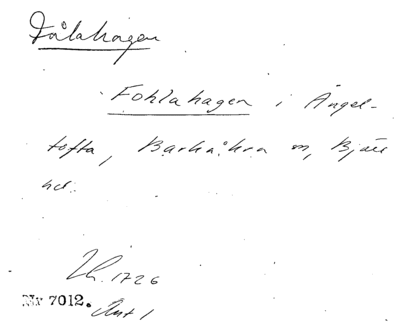 Fålahagen
Fohlahagen i Ängel-
tofta, Barkåkra sn, Bjäre
hd.
Lh. 1726
Nr 7012. Ant 1